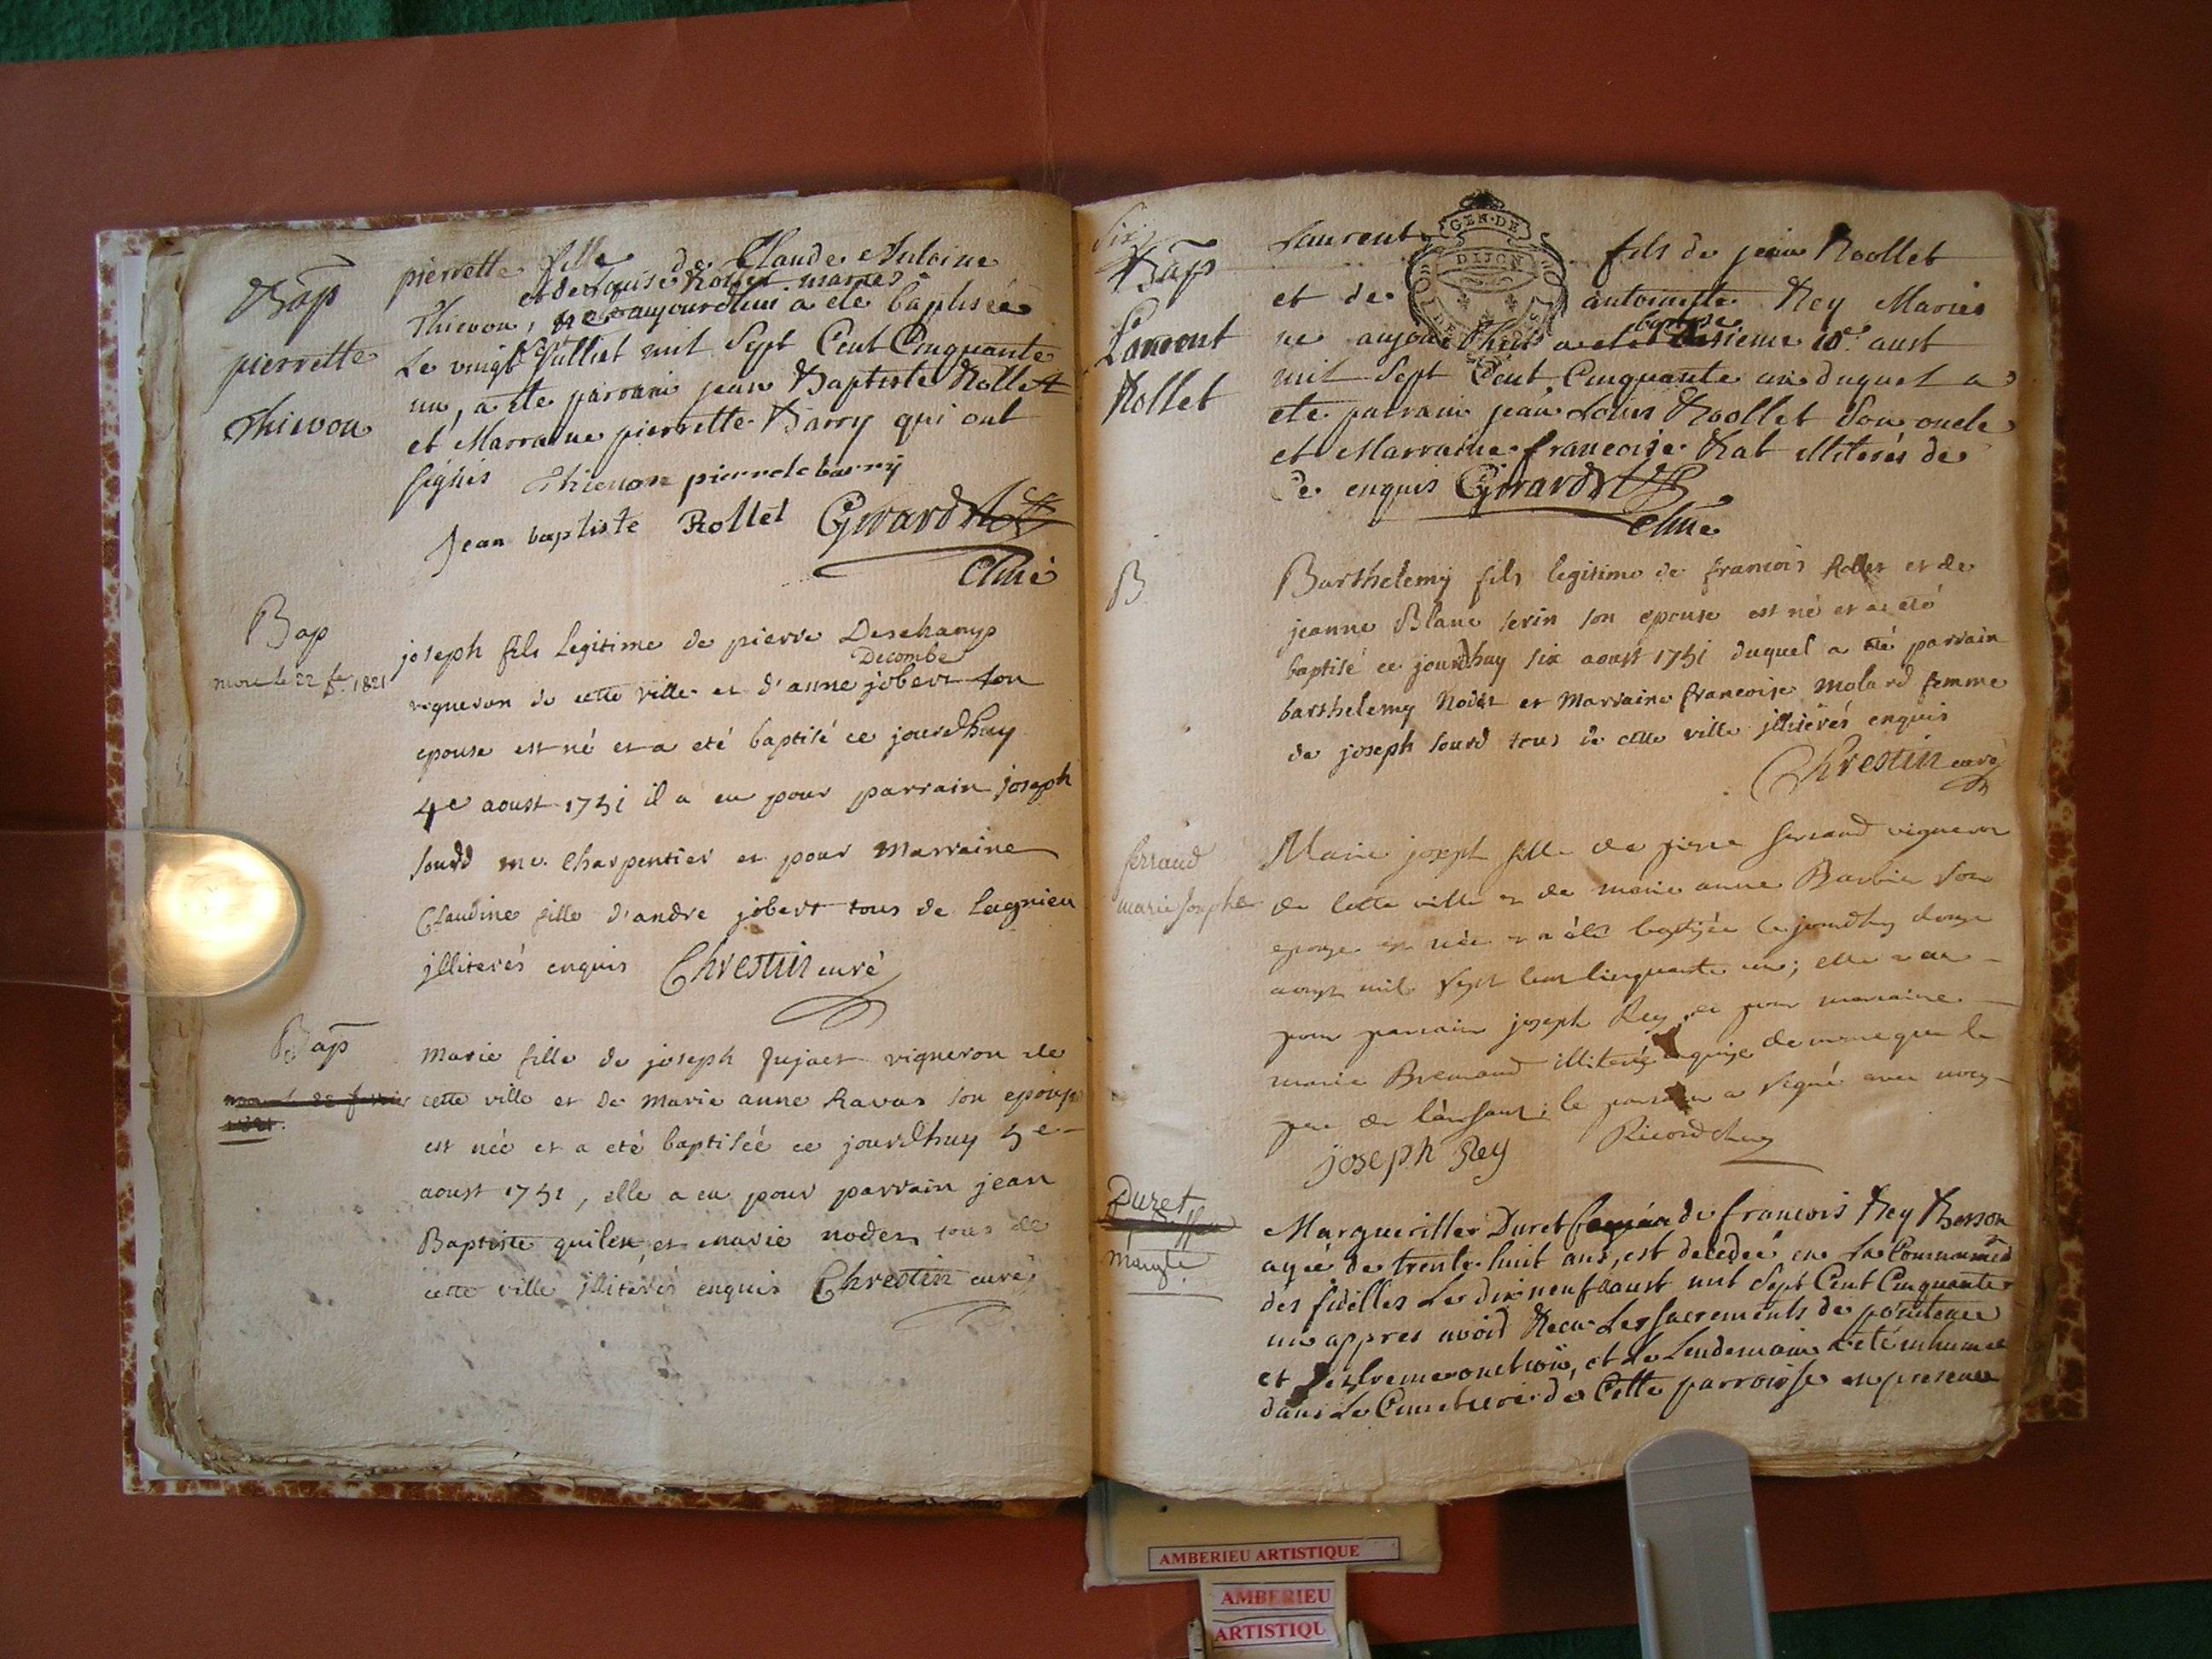 Bap
pierrette
Thievon
pierrette fille de Claude Antoine
et de Louise Rollet mariés
Thievon, aujourdhui a ete baptisée
Le vingt sept Julliet mil Sept Cent Cinquante
un, a ete parrain jean Baptiste Rollet
et Marraine pierrette Barry qui ont
signés Thievon pierrete barry
Jean baptiste Rollet Girard
Curé
Bap
mort le 22 fer 1821
joseph fils legitime de pierre Deschamps
Decombe
vigneron de cette ville et d'anne jobert son
epouse est né et a eté baptisé ce jourdhuy
4e aoust 1751 il a eu pour parrain joseph
sourd me charpentier et pour marraine
Claudine fille d'andre jobert tous de Lagnieu
jlliterés enquis Chrestin curé
Bap
marie fille de joseph jujaet vigneron de
cette ville et de marie anne Ravas son epouse
est née et a eté baptiséé ce jourdhuy 5e
aoust 1751, elle a eu pour parrain jean
Baptiste et marie noder tous de
cette ville jlliterés enquis Chrestin curé
Six
Bap
Laurent
Rollet
Laurent fils de jean Roollet
GEN. DE
DIJON
et de antoinette Rey Mariés
ne aujourdhui a ete baptisé 10e aust
mil Sept Cent Cinquante un duquel a
ete parrain jean Louis Roollet son oncle
et Marraine francoise Rat illiterés de
Ce enquis Girard
Curé
B
Barthelemy fils legitime de francois Rollet et de
jeanne Blanc serin son epouse est né et a eté
baptisé ce jourdhuy six aoust 1751 duquel a eté parrain
barthelemy Noder et Marraine francoise molard femme
de joseph sourd tous de cette ville jlliterés enquis
Chrestin curé
ferraud
marie Josephe
Marie joseph fille de pierre ferraud vigneron
de cette ville et de marie anne Barbier son
epouse est née et a été baptisée ce jourdhuy douze
aoust mil sept cent cinquante un; elle a eu
pour parrain joseph Rey, et pour marraine
marie Bremand illiterée enquise de meme que le
pere de l'enfant; le parrain a signé avec nous
joseph Rey Ricord
Duret
Margte
Margueritte Duret de francois Rey Besson
agée de trente huit ans, est decedeé en La Communion
des fidelles Le dix neuf aaust mil Sept Cent Cinquante
un appres avoir Recu Les Sacrements de penitence
et L'extreme onction, et Le Lendemain a eté inhumée
dans Le Cimetiere de Cette parroisse en presence
AMBERIEU ARTISTIQUE
AMBERIEU
ARTISTIQU